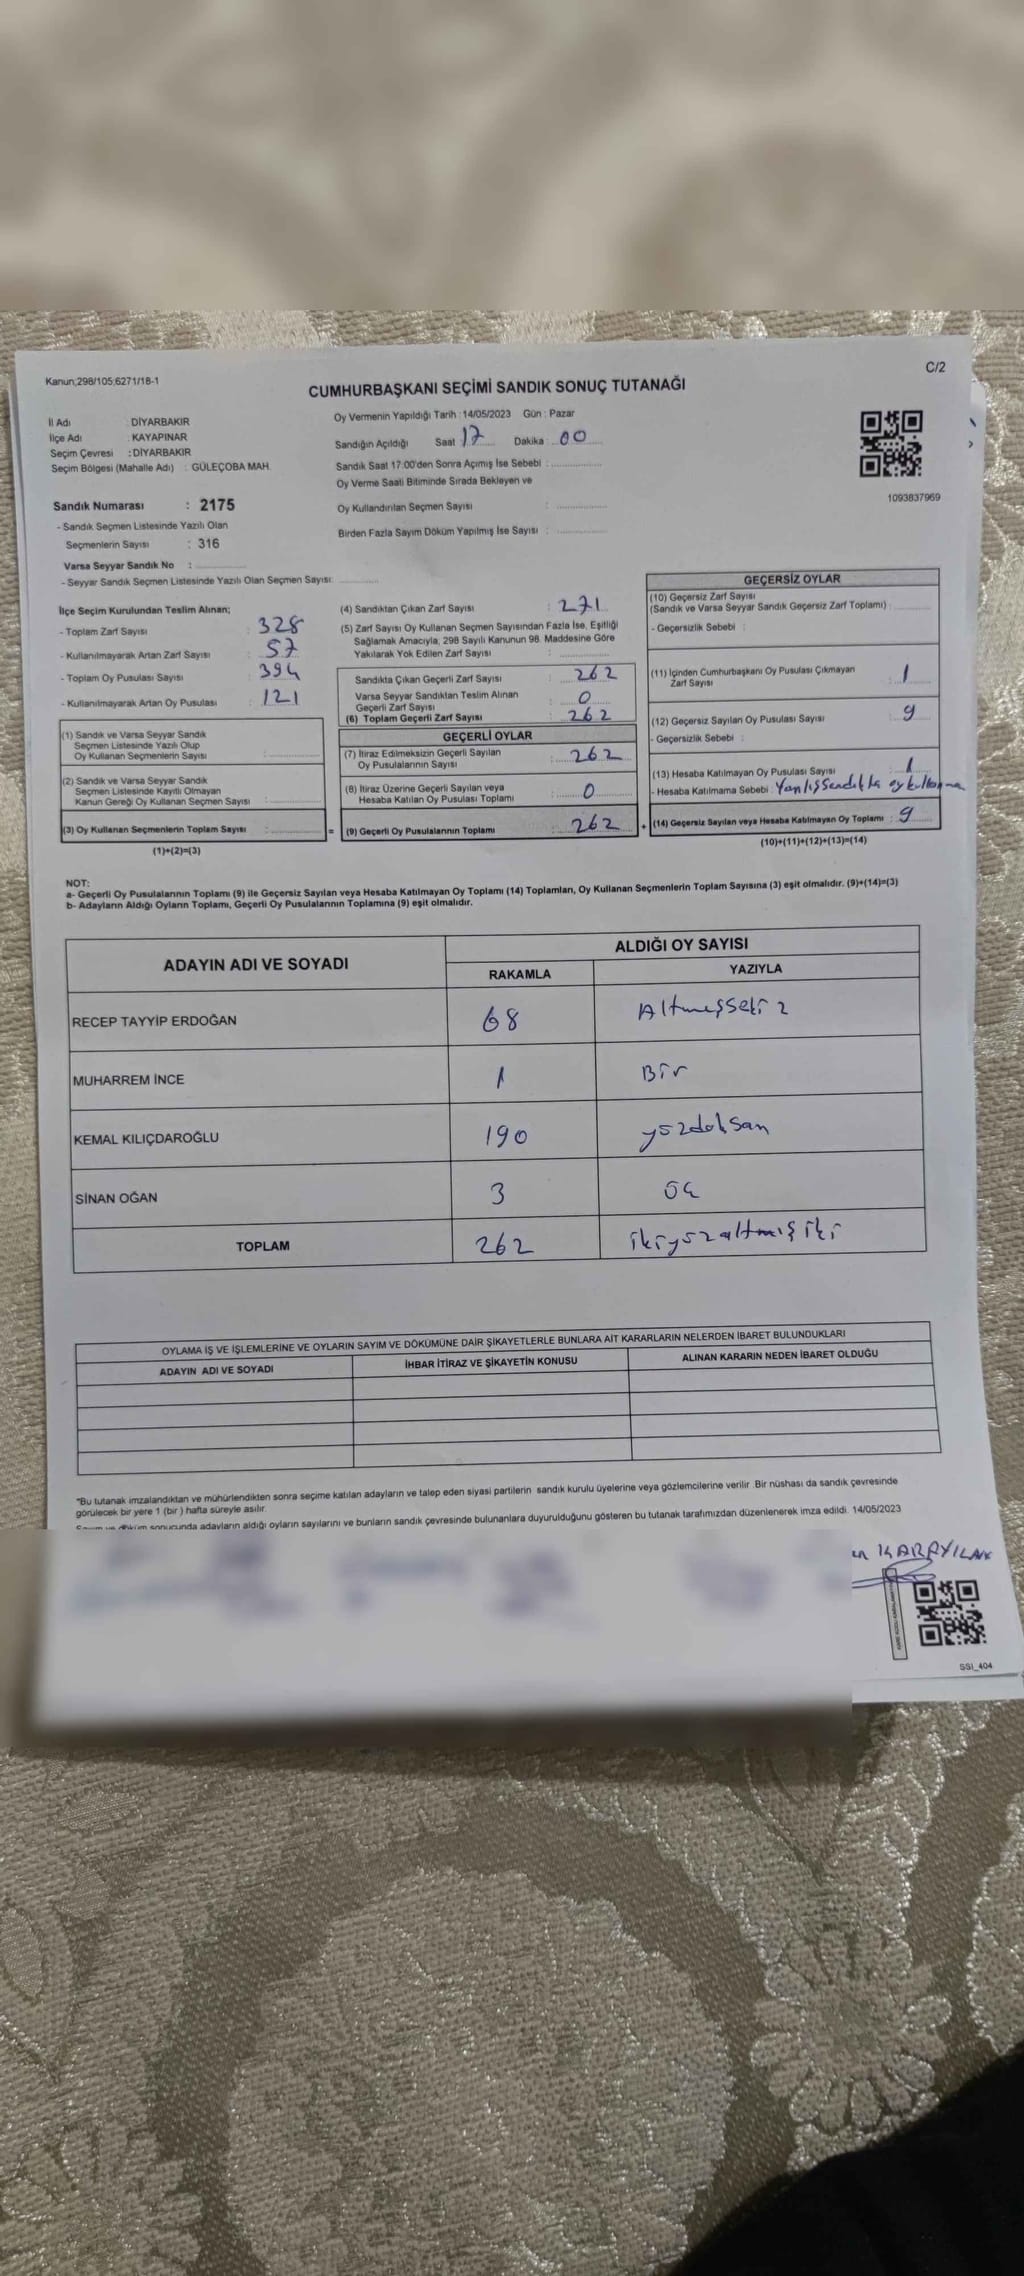 Kanun;298/105;6271/18-1
C/2
CUMHURBAŞKANI SEÇİMİ SANDIK SONUÇ TUTANAĞI
İl Adı : DİYARBAKIR
İlçe Adı : KAYAPINAR
Seçim Çevresi : DİYARBAKIR
Seçim Bölgesi (Mahalle Adı) : GÜLEÇOBA MAH.
Oy Vermenin Yapıldığı Tarih : 14/05/2023 Gün : Pazar
Sandığın Açıldığı Saat 17 Dakika : 00
Sandık Saat 17:00'den Sonra Açımış İse Sebebi :
Oy Verme Saati Bitiminde Sırada Bekleyen ve
Oy Kullandırılan Seçmen Sayısı :
Birden Fazla Sayım Döküm Yapılmış İse Sayısı :
1093837969
Sandık Numarası : 2175
- Sandık Seçmen Listesinde Yazılı Olan
Seçmenlerin Sayısı : 316
Varsa Seyyar Sandık No :
- Seyyar Sandık Seçmen Listesinde Yazılı Olan Seçmen Sayısı:
İlçe Seçim Kurulundan Teslim Alınan;
- Toplam Zarf Sayısı : 328
- Kullanılmayarak Artan Zarf Sayısı : 57
- Toplam Oy Pusulası Sayısı : 394
- Kullanılmayarak Artan Oy Pusulası : 121
(1) Sandık ve Varsa Seyyar Sandık
Seçmen Listesinde Yazılı Olup
Oy Kullanan Seçmenlerin Sayısı :
(2) Sandık ve Varsa Seyyar Sandık
Seçmen Listesinde Kayıtlı Olmayan
Kanun Gereği Oy Kullanan Seçmen Sayısı :
(3) Oy Kullanan Seçmenlerin Toplam Sayısı :
(1)+(2)=(3)
(4) Sandıktan Çıkan Zarf Sayısı : 271
(5) Zarf Sayısı Oy Kullanan Seçmen Sayısından Fazla İse, Eşitliği
Sağlamak Amacıyla, 298 Sayılı Kanunun 98. Maddesine Göre
Yakılarak Yok Edilen Zarf Sayısı :
Sandıkta Çıkan Geçerli Zarf Sayısı : 262
Varsa Seyyar Sandıktan Teslim Alınan
Geçerli Zarf Sayısı : 0
(6) Toplam Geçerli Zarf Sayısı : 262
GEÇERLİ OYLAR
(7) İtiraz Edilmeksizin Geçerli Sayılan
Oy Pusulalarının Sayısı : 262
(8) İtiraz Üzerine Geçerli Sayılan veya
Hesaba Katılan Oy Pusulası Toplamı : 0
= (9) Geçerli Oy Pusulalarının Toplamı : 262
GEÇERSİZ OYLAR
(10) Geçersiz Zarf Sayısı
(Sandık ve Varsa Seyyar Sandık Geçersiz Zarf Toplamı) :
- Geçersizlik Sebebi :
(11) İçinden Cumhurbaşkanı Oy Pusulası Çıkmayan
Zarf Sayısı : 1
(12) Geçersiz Sayılan Oy Pusulası Sayısı : 9
- Geçersizlik Sebebi :
(13) Hesaba Katılmayan Oy Pusulası Sayısı : 1
- Hesaba Katılmama Sebebi : Yanlış Sandıkta oy kullanma
+ (14) Geçersiz Sayılan veya Hesaba Katılmayan Oy Toplamı : 9
(10)+(11)+(12)+(13)=(14)
NOT:
a- Geçerli Oy Pusulalarının Toplamı (9) ile Geçersiz Sayılan veya Hesaba Katılmayan Oy Toplamı (14) Toplamları, Oy Kullanan Seçmenlerin Toplam Sayısına (3) eşit olmalıdır. (9)+(14)=(3)
b- Adayların Aldığı Oyların Toplamı, Geçerli Oy Pusulalarının Toplamına (9) eşit olmalıdır.
ADAYIN ADI VE SOYADI ALDIĞI OY SAYISI
RAKAMLA YAZIYLA
RECEP TAYYİP ERDOĞAN 68 Altmışseki2
MUHARREM İNCE 1 Bir
KEMAL KILIÇDAROĞLU 190 yüzdoksan
SİNAN OĞAN 3 üç
TOPLAM 262 ikiyüzaltmış iki
OYLAMA İŞ VE İŞLEMLERİNE VE OYLARIN SAYIM VE DÖKÜMÜNE DAİR ŞİKAYETLERLE BUNLARA AİT KARARLARIN NELERDEN İBARET BULUNDUKLARI
ADAYIN ADI VE SOYADI İHBAR İTİRAZ VE ŞİKAYETİN KONUSU ALINAN KARARIN NEDEN İBARET OLDUĞU
*Bu tutanak imzalandıktan ve mühürlendikten sonra seçime katılan adayların ve talep eden siyasi partilerin sandık kurulu üyelerine veya gözlemcilerine verilir. Bir nüshası da sandık çevresinde
görülecek bir yere 1 (bir) hafta süreyle asılır.
Sayım ve döküm sonucunda adayların aldığı oyların sayılarını ve bunların sandık çevresinde bulunanlara duyurulduğunu gösteren bu tutanak tarafımızdan düzenlenerek imza edildi. 14/05/2023
KARAYILAN
SSI_404